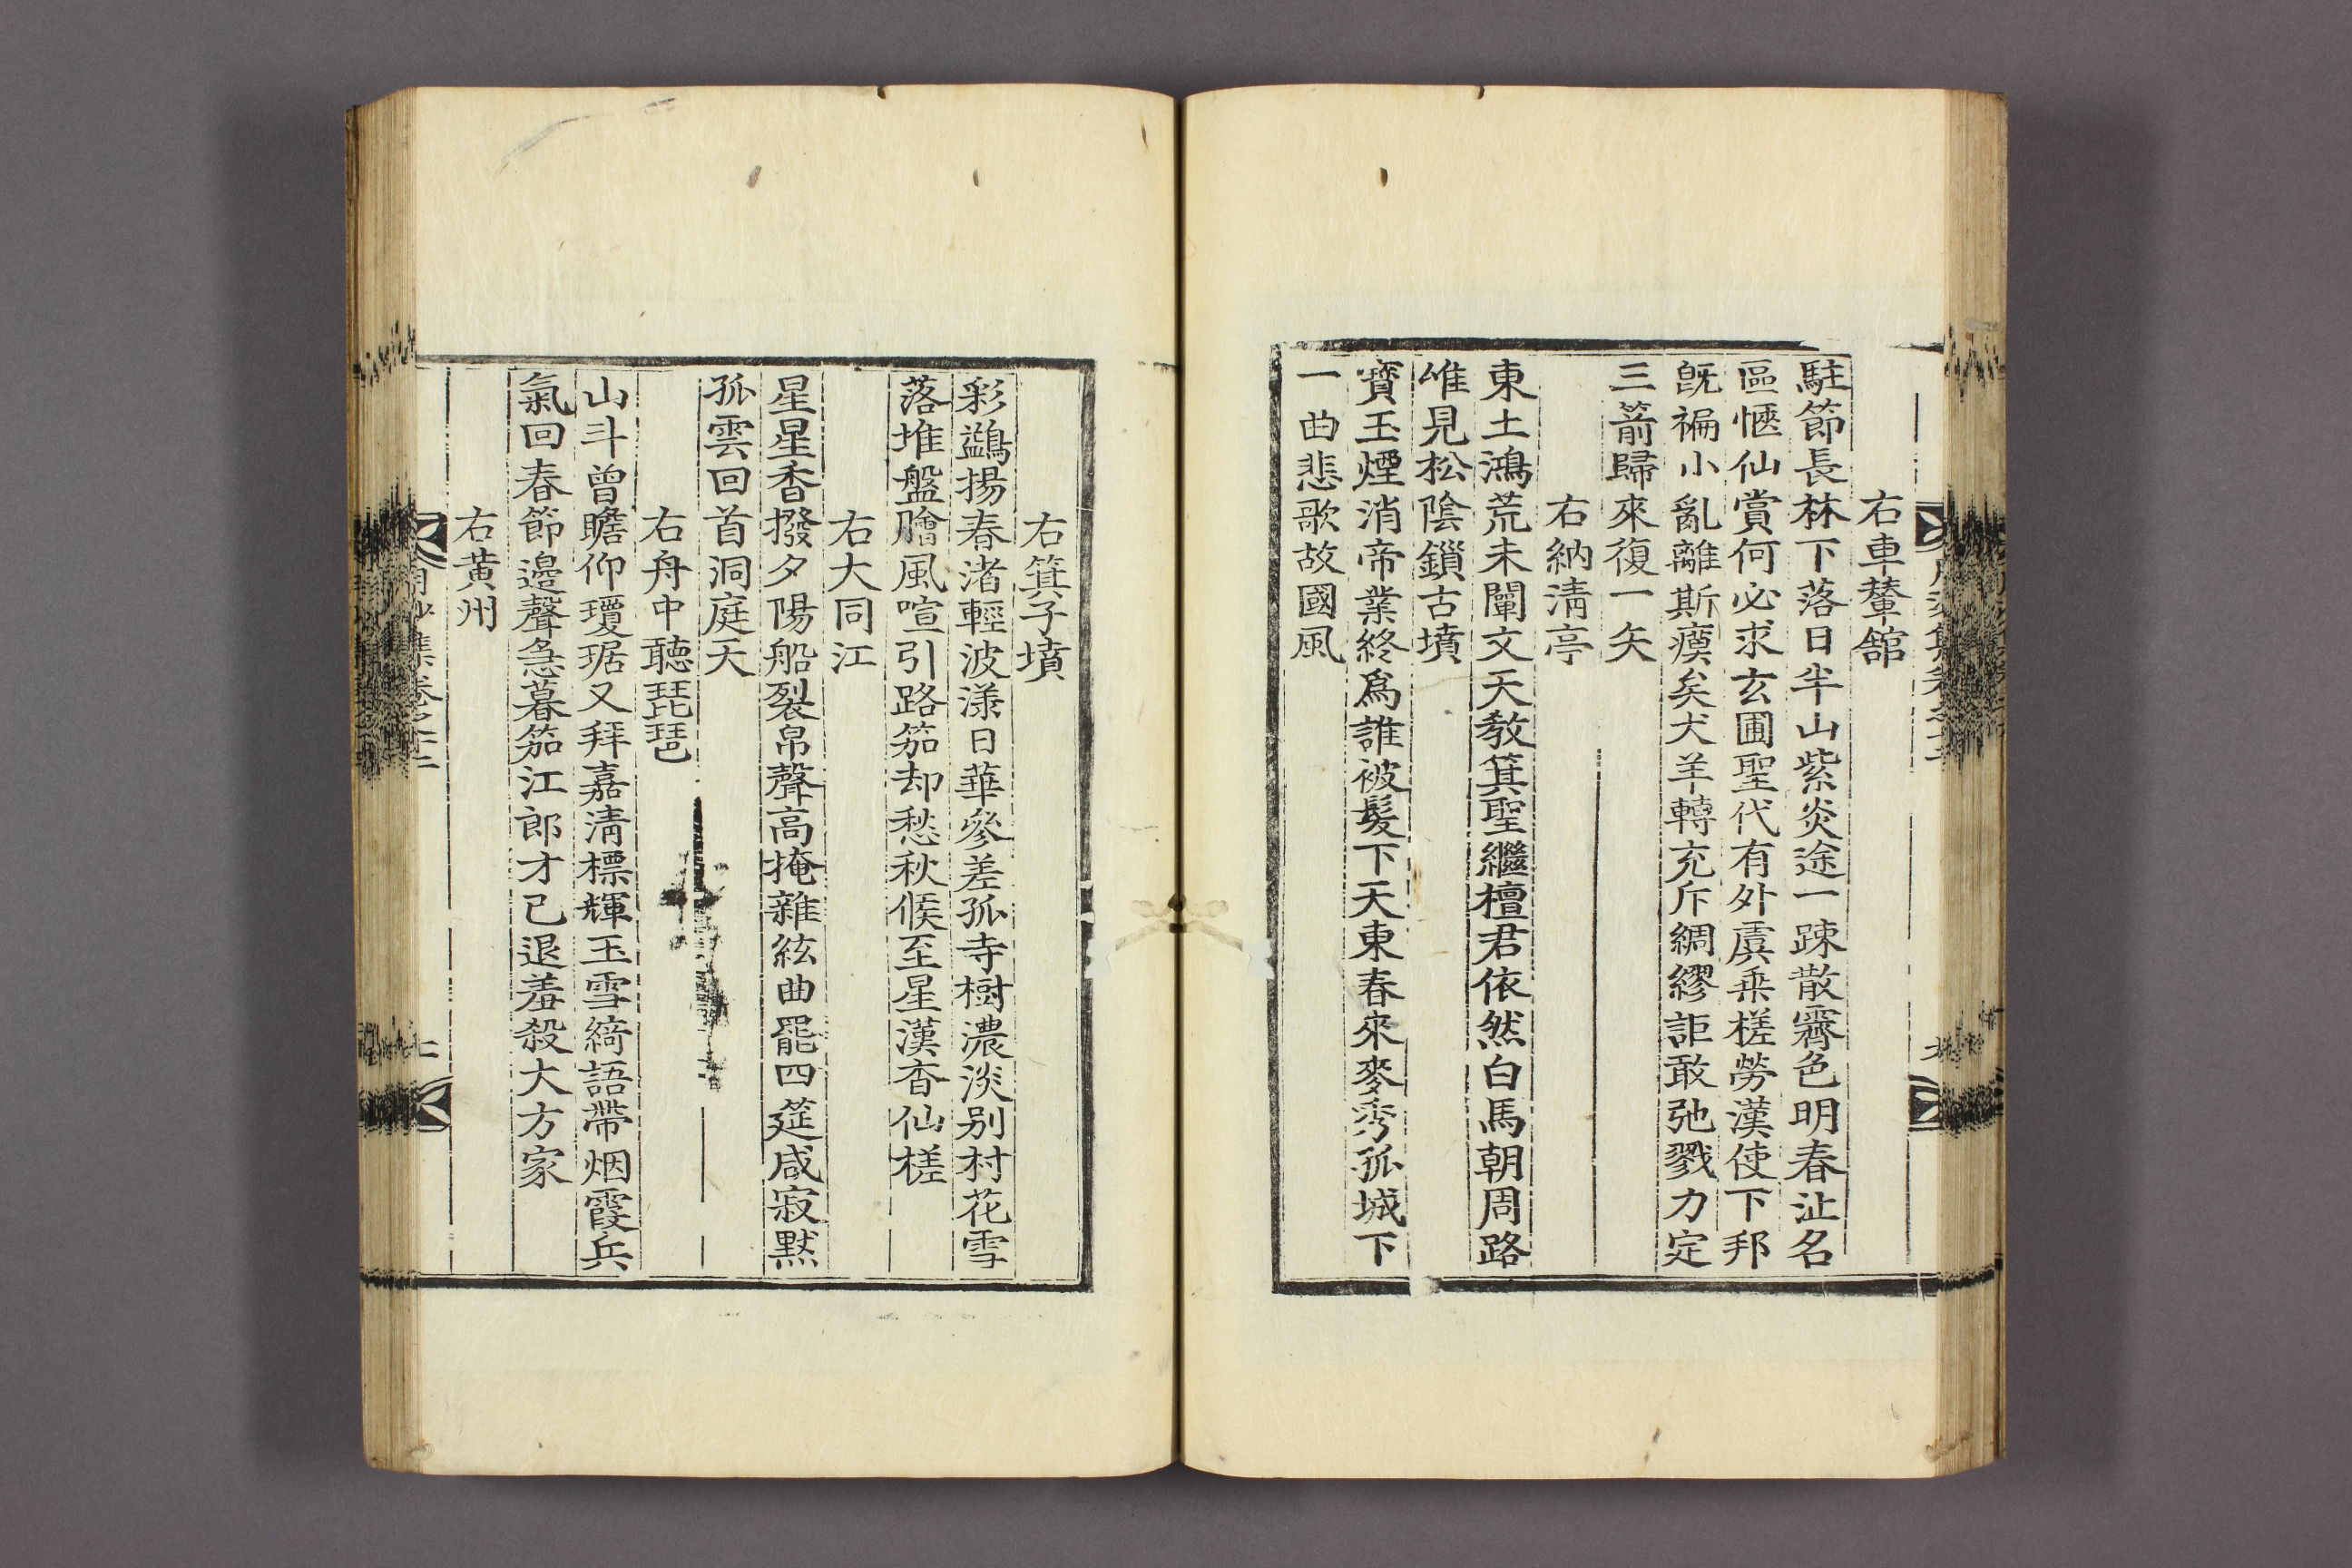 右車輦舘
駐節長林下落日半山紫炎途一踈散霽色明春沚名
區愜仙賞何必求玄圃聖代有外虞乗槎勞漢使下邦
旣褊小亂離斯瘼矣犬羊轉充斥綢繆詎敢弛戮力定
三箭歸來復一矢
右納淸亭
東土鴻荒未闡文天敎箕聖繼檀君依然白馬朝周路
唯見松陰鎖古墳
寶玉煙消帝業終爲誰被髮下天東春來麥秀孤城下
一曲悲歌故國風
右箕子墳
彩鷁揚春渚輕波漾日華參差孤寺樹濃淡别村花雪
落堆盤膾風喧引路笳却愁秋候至星漢杳仙槎
右大同江
星星香撥夕陽船裂帛聲高掩雜絃曲罷四筵咸寂默
孤雲回首洞庭天
右舟中聽琵琶
山斗曾瞻仰瓊琚又拜嘉淸標輝玉雪綺語帶烟霞兵
氣回春節邉聲急暮笳江郎才已退羞殺大方家
右黃州